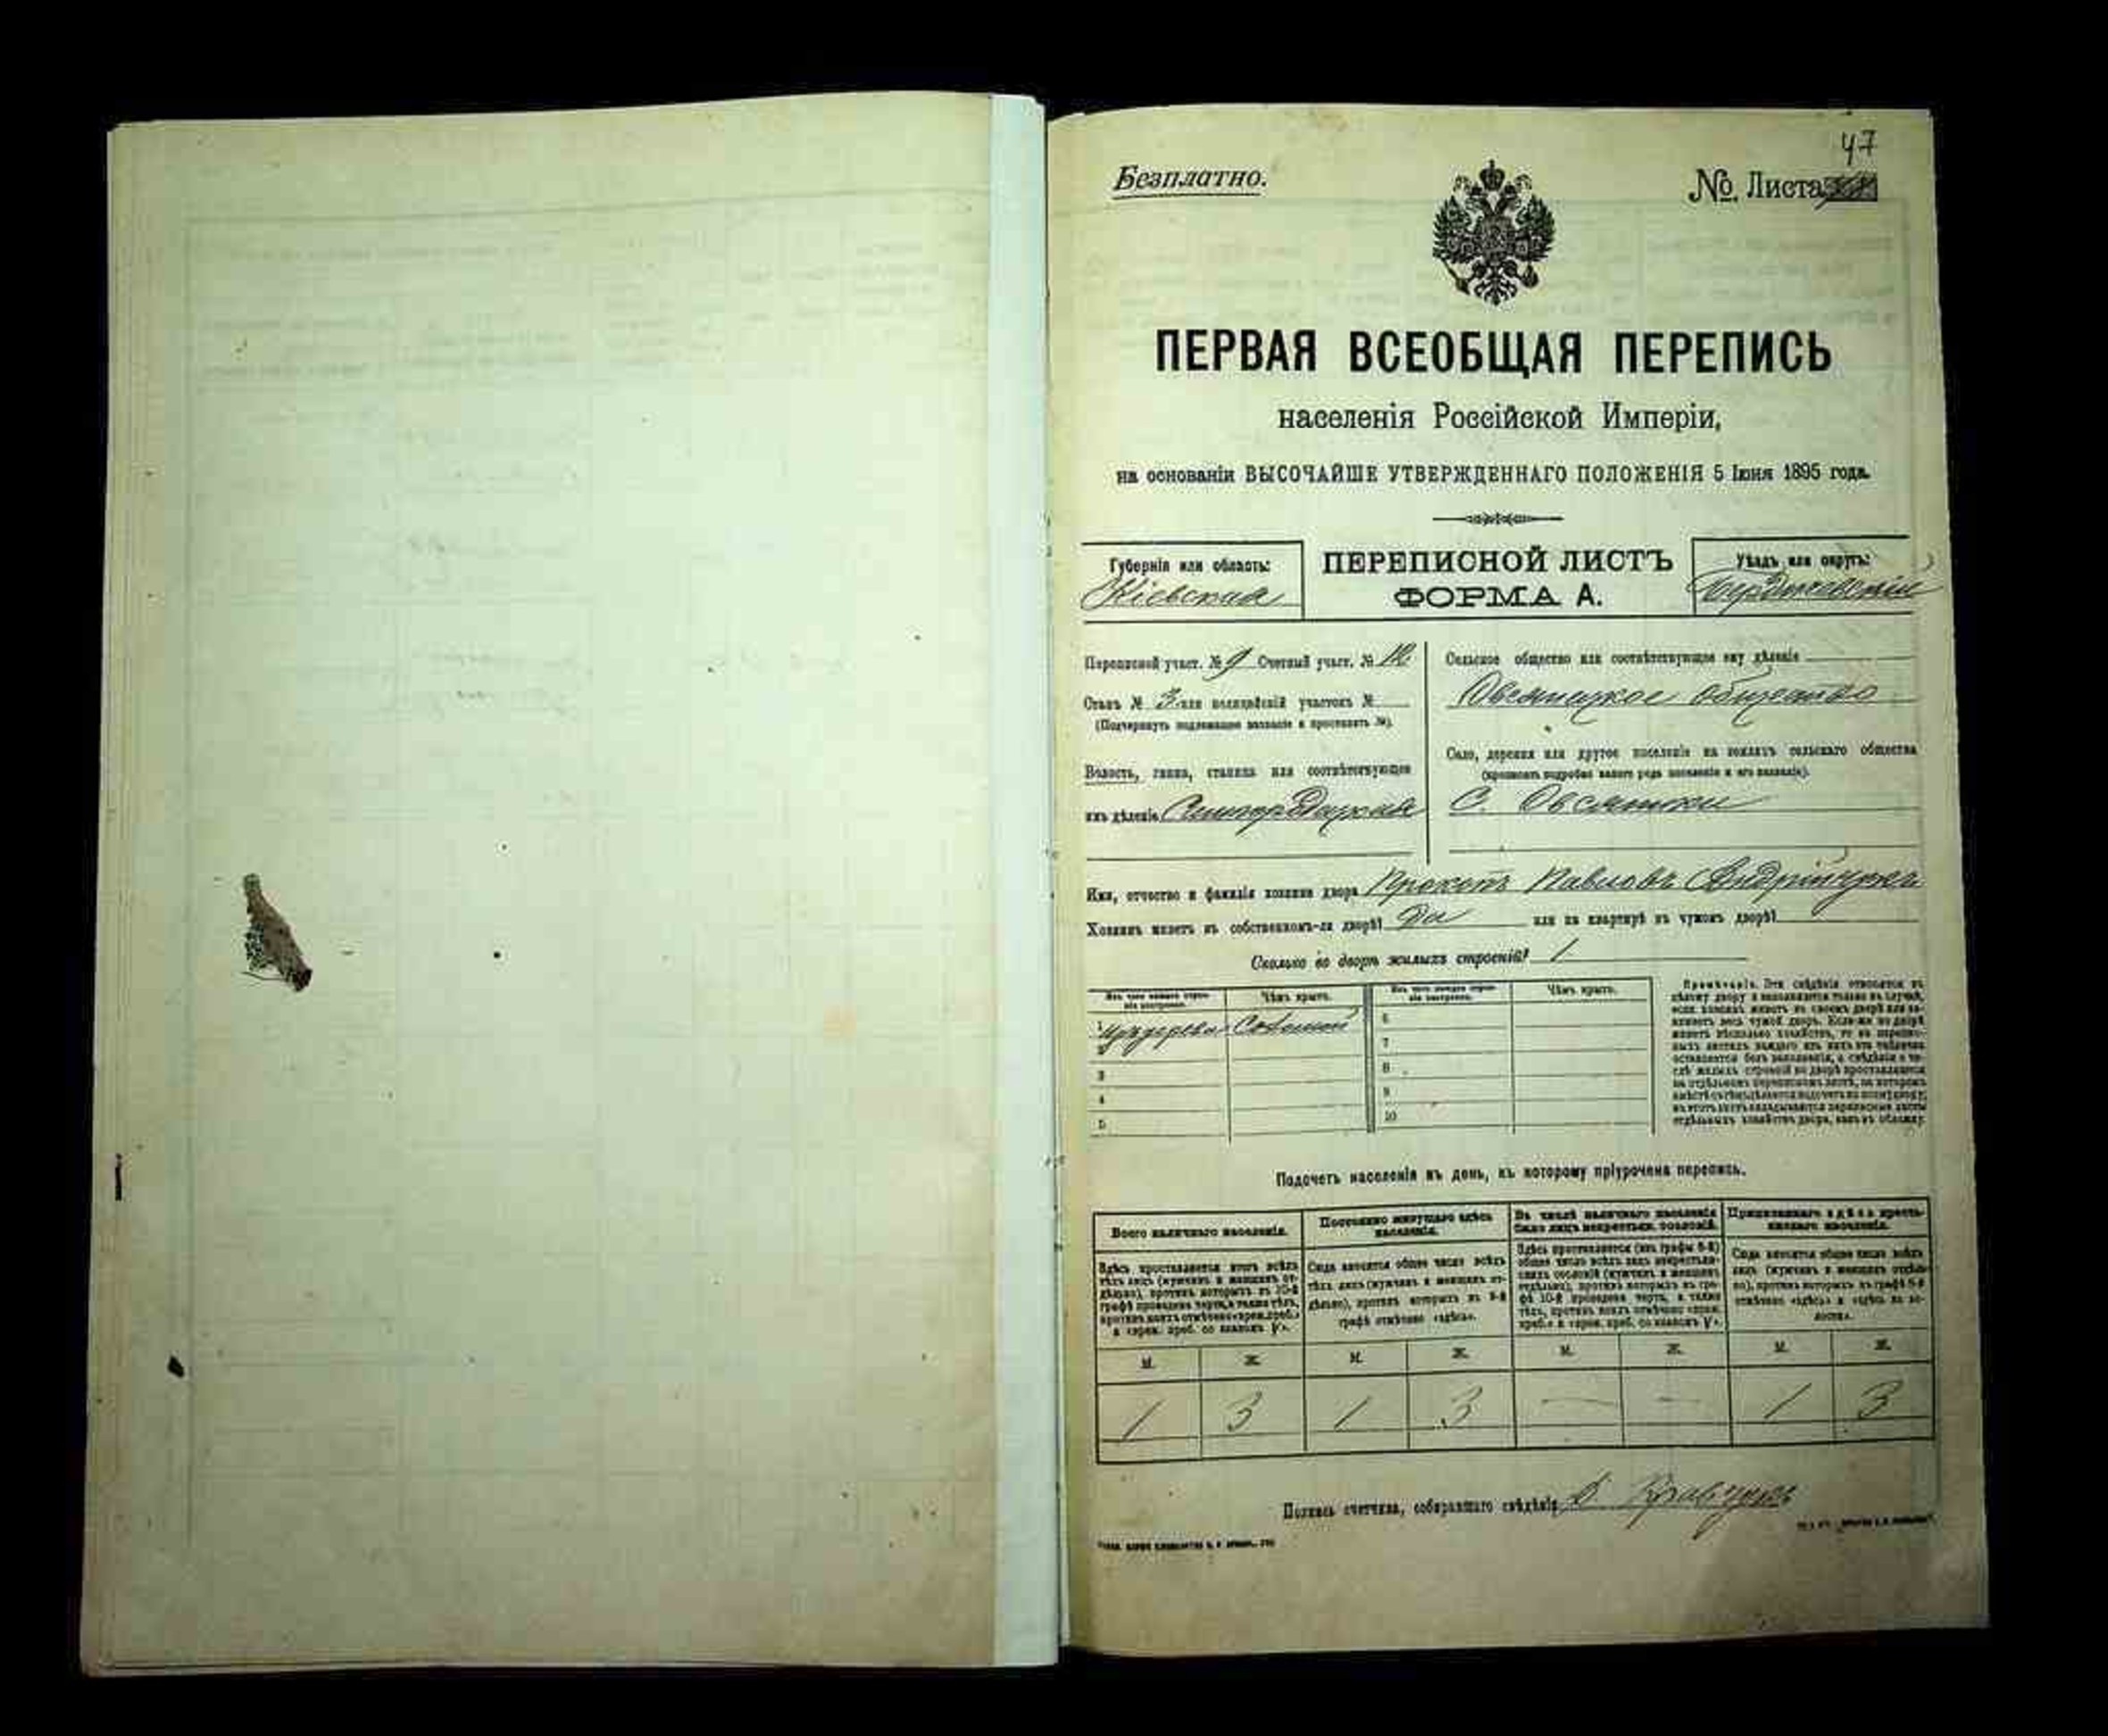 47
Безплатно.
№ Листа
ПЕРВАЯ ВСЕОБЩАЯ ПЕРЕПИСЬ
населенія Россійской Имперіи,
на основаніи ВЫСОЧАЙШЕ УТВЕРЖДЕННАГО ПОЛОЖЕНІЯ 5 Іюня 1895 года.
Губернія или область:
Кіевская
ПЕРЕПИСНОЙ ЛИСТЪ
ФОРМА А.
Уѣздъ или округъ:
Бердичевскій
Переписной участ. № 9 Счетный участ. № 12
Станъ № 3 или полицейскій участокъ №
(Подчеркнуть подлежащее названіе и проставить №).
Волость, гмина, станица или соотвѣтствующее
имъ дѣленіе
Сельское общество или соотвѣтствующее ему дѣленіе
Овсяницкое общество
Село, деревня или другое поселеніе на земляхъ сельскаго общества
(прописать подробно какого рода поселеніе и его названіе).
С. Овсяники
Имя, отчество и фамилія хозяина двора Прокопъ Павловъ Андрійчукъ
Хозяинъ живетъ въ собственномъ-ли дворѣ? Да или на квартирѣ въ чужомъ дворѣ?
Сколько во дворѣ жилыхъ строеній? 1
Изъ чего каждое строе-
ніе построено.
Чѣмъ крыто.
Изъ чего каждое строе-
ніе построено.
Чѣмъ крыто.
1 Изъ дерева Соломой
2
3
4
5
6
7
8
9
10
Примѣчаніе. Эти свѣдѣнія относятся къ
цѣлому двору и заполняются только въ случаѣ,
если хозяинъ живетъ въ своемъ дворѣ или за-
нимаетъ весь чужой дворъ. Если-же во дворѣ
живетъ нѣсколько хозяйствъ, то въ перепис-
ныхъ листахъ каждаго изъ нихъ эта табличка
оставляется безъ заполненія, а свѣдѣнія о чи-
слѣ жилыхъ строеній во дворѣ проставляются
на отдѣльномъ переписномъ листѣ, на которомъ
вмѣстѣ съ тѣмъ дѣлается подсчетъ по всему двору;
въ этотъ листъ вкладываются переписные листы
отдѣльныхъ хозяйствъ двора, какъ въ обложку.
Подсчетъ населенія въ день, къ которому пріурочена перепись.
Всего наличнаго населенія.
Здѣсь проставляется итогъ всѣхъ
тѣхъ лицъ (мужчинъ и женщинъ от-
дѣльно), противъ которыхъ въ 10-й
графѣ проведена черта, а также тѣхъ,
противъ коихъ отмѣчено «врем. преб.»
и «врем. преб. со знакомъ V».
Постоянно живущаго здѣсь
населенія.
Сюда вносится общее число всѣхъ
тѣхъ лицъ (мужчинъ и женщинъ от-
дѣльно), противъ которыхъ въ 9-й
графѣ отмѣчено «здѣсь».
Въ числѣ наличнаго населенія
было лицъ некрестьян. сословій.
Здѣсь проставляется (изъ графы 8-й)
общее число всѣхъ лицъ некрестьян-
скихъ сословій (мужчинъ и женщинъ
отдѣльно), противъ которыхъ въ гра-
фѣ 10-й проведена черта, а также
тѣхъ, противъ коихъ отмѣчено «врем.
преб.» и «врем. преб. со знакомъ V».
Приписаннаго здѣсь кресть-
янскаго населенія.
Сюда вносится общее число всѣхъ
лицъ (мужчинъ и женщинъ отдѣль-
но), противъ которыхъ въ графѣ 8-й
отмѣчено «здѣсь» и «здѣсь по во-
лости».
М. Ж. М. Ж. М. Ж. М. Ж.
1 3 1 3 — — 1 3
Подпись счетчика, собиравшаго свѣдѣнія Кравчукъ